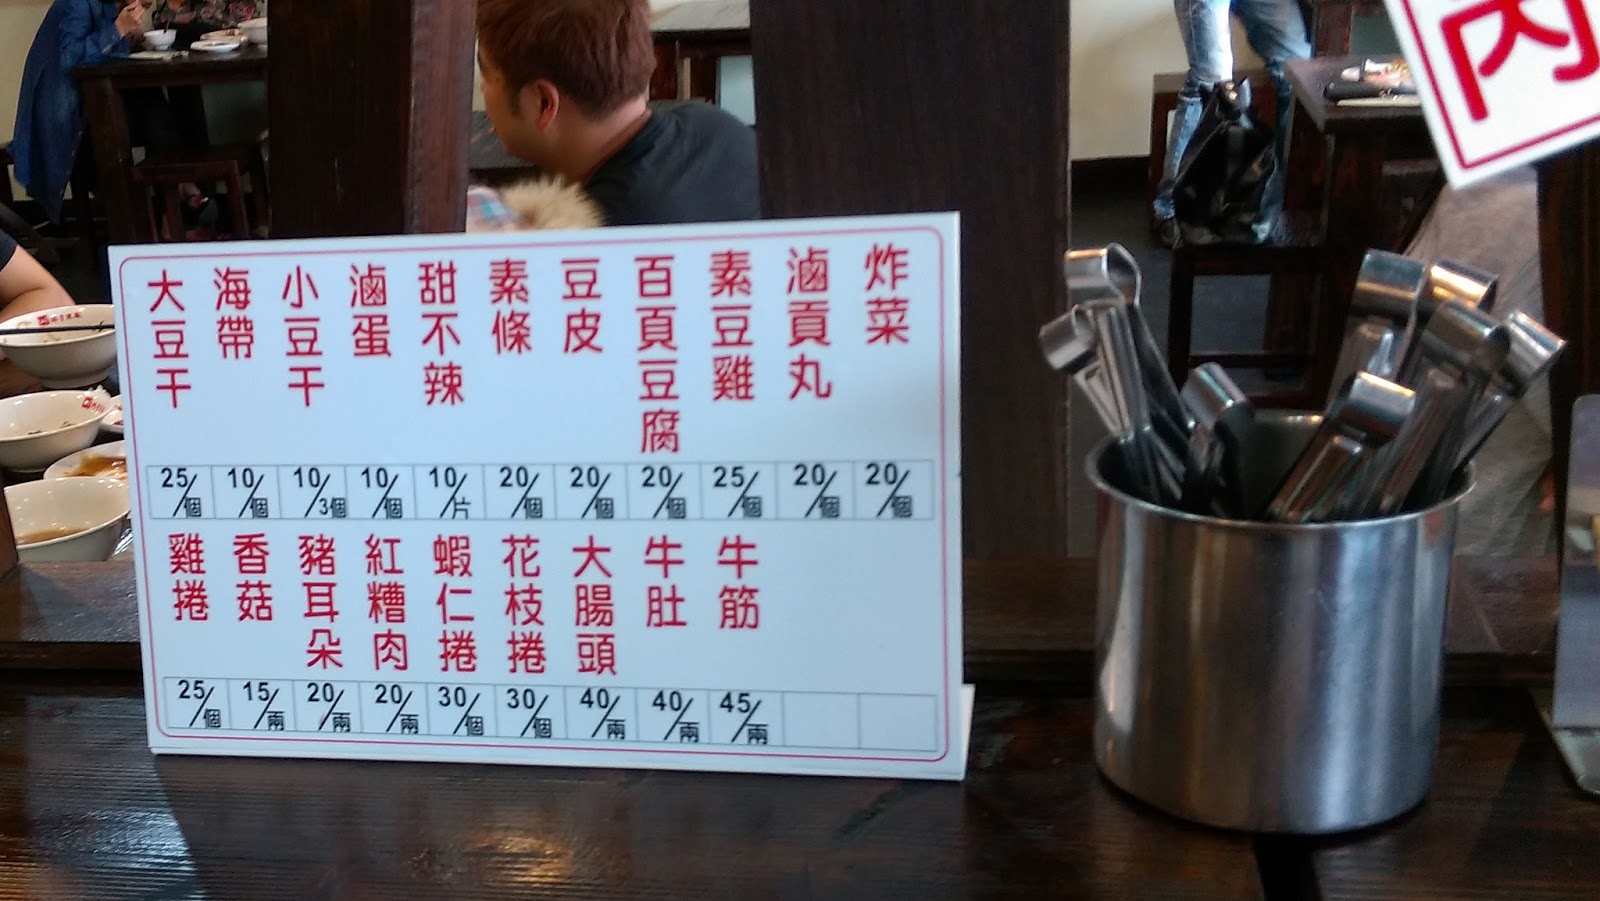 大豆干
海帶
小豆干
滷蛋
甜不辣
素條
豆皮
百頁豆腐
素豆雞
滷貢丸
炸菜
25/個
10/個
10/3個
10/個
10/片
20/個
20/個
20/個
25/個
20/個
20/個
雞捲
香菇
豬耳朵
紅糟肉
蝦仁捲
花枝捲
大腸頭
牛肚
牛筋
25/個
15/兩
20/兩
20/兩
30/個
30/個
40/兩
40/兩
45/兩
肉